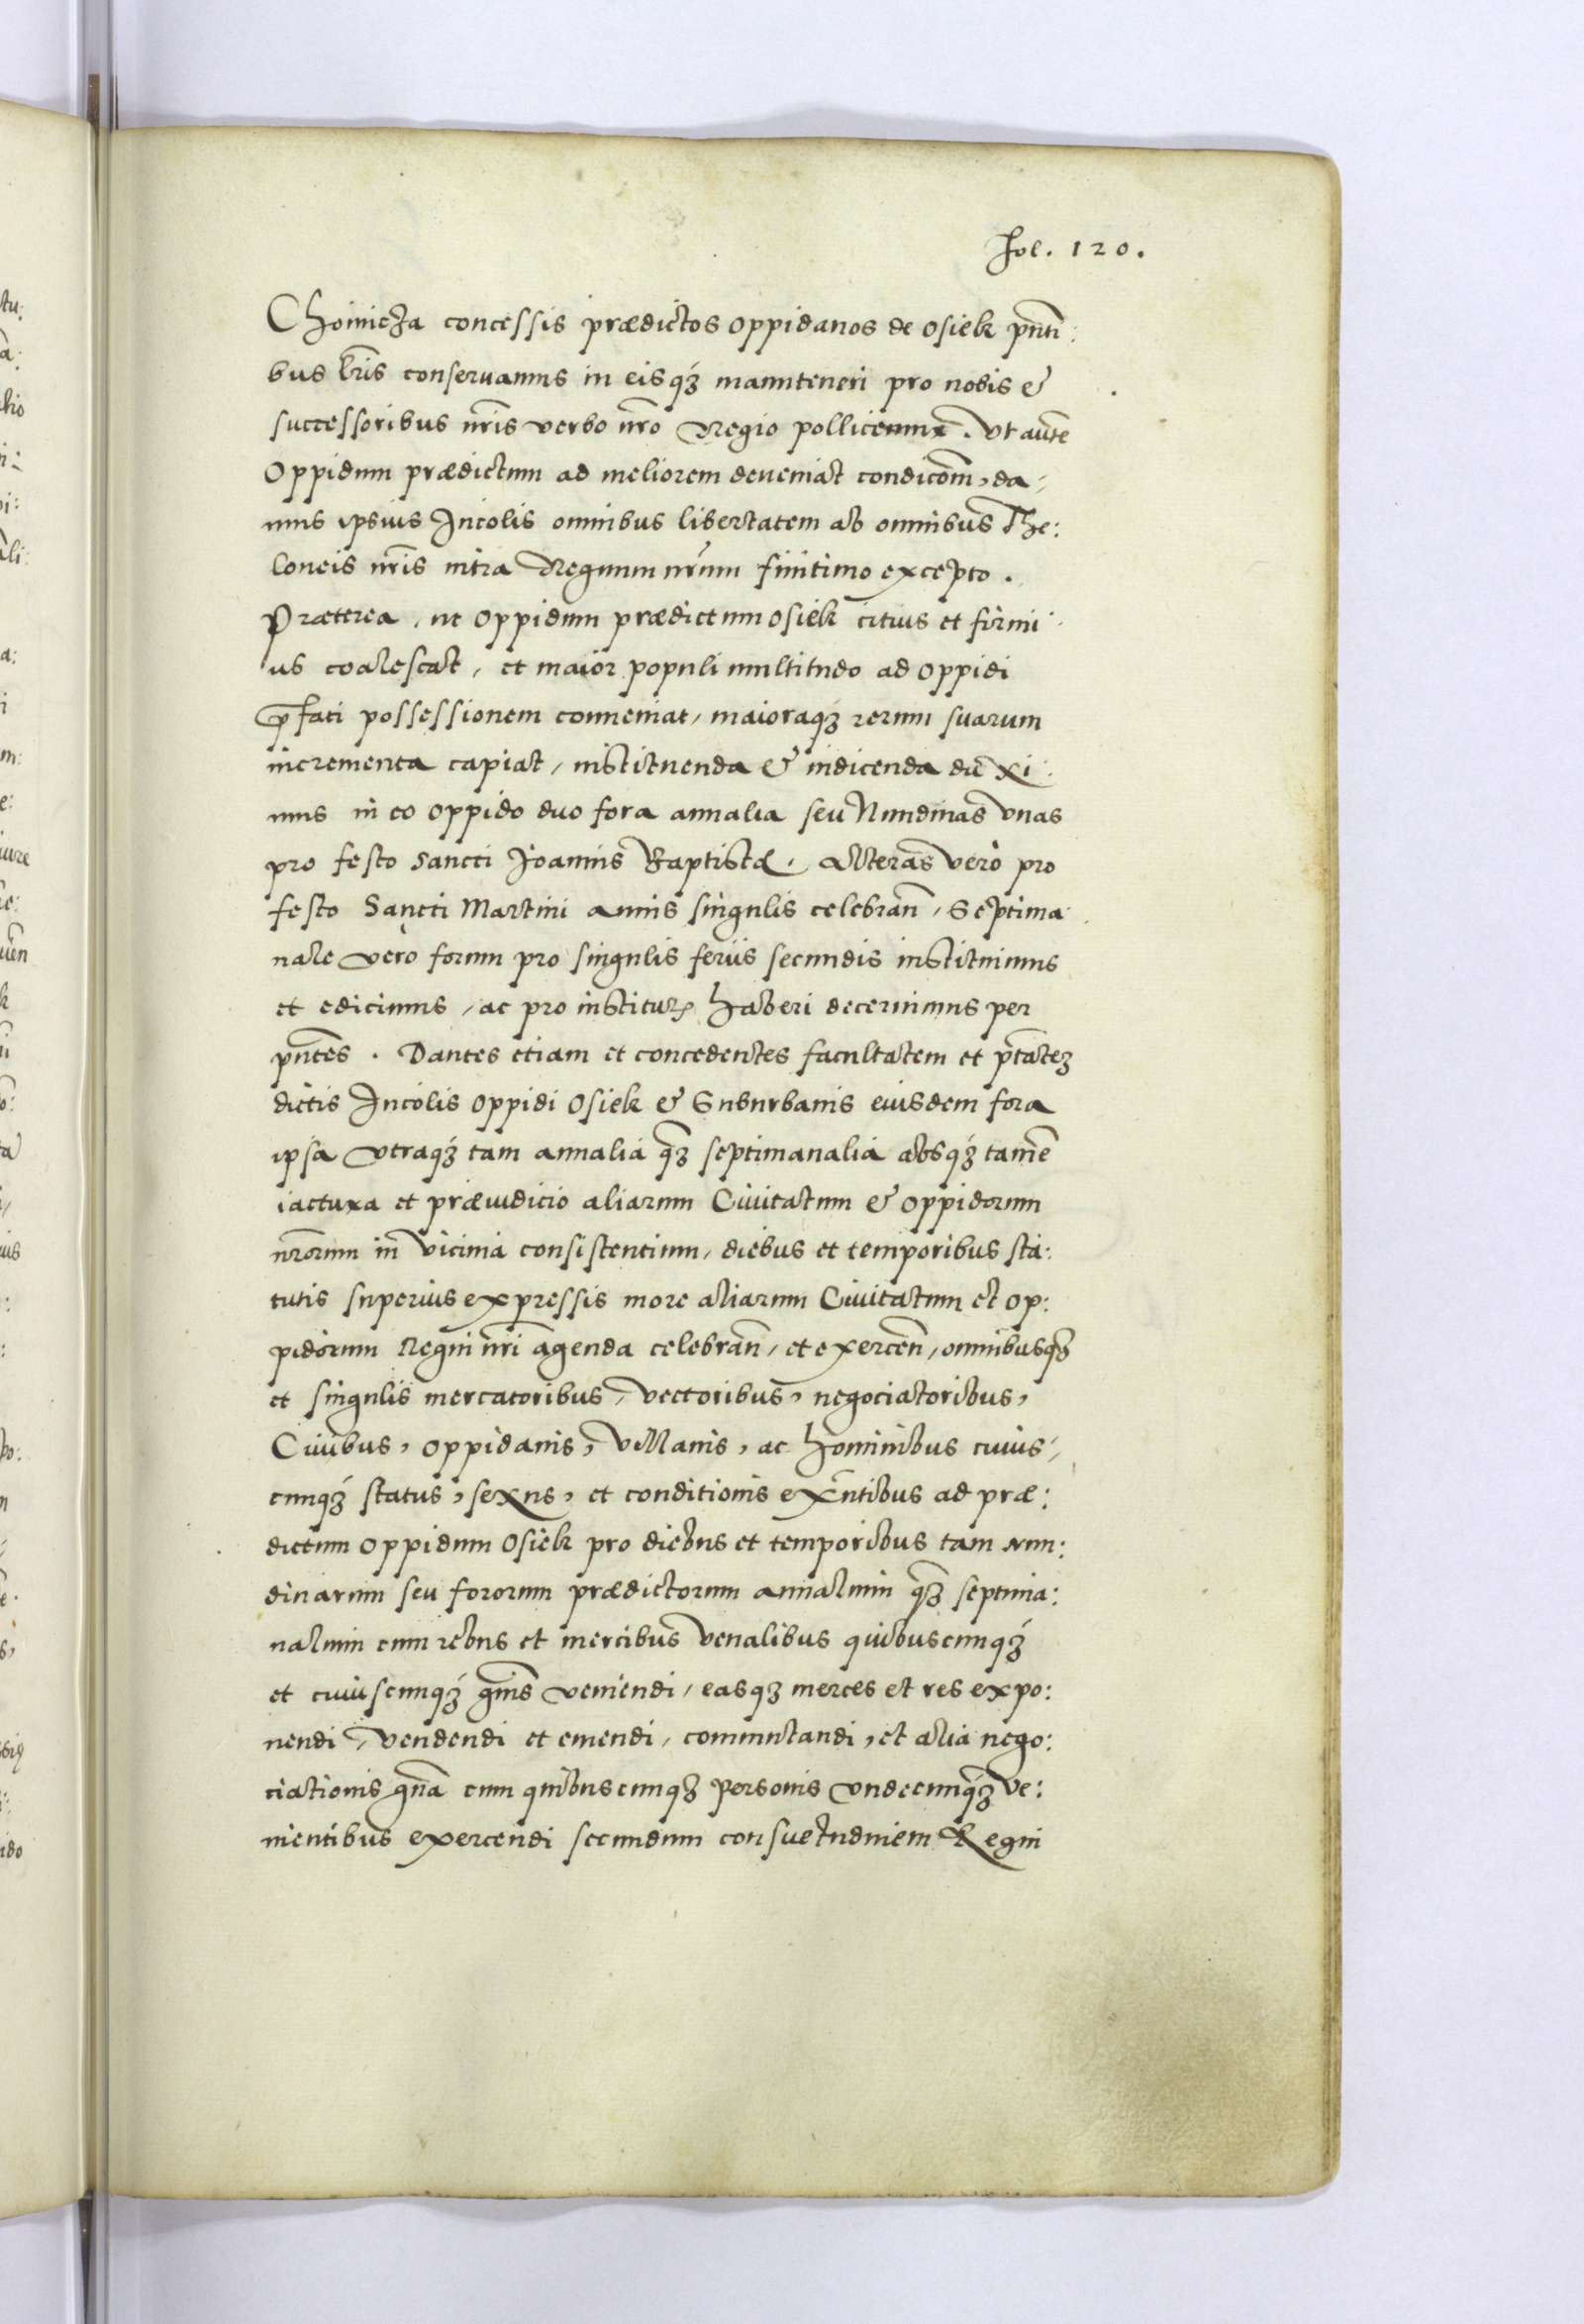 Fol. 120.
Choinicza concessis prædictos oppidanos de Osiek pñti:
bus lr̃is conseruamus in eisq́ȝ manuteneri pro nobis &
successoribus nr̃is verbo nr̃o Regio pollicemur. Vt aut̃e
Oppidum prædictum ad meliorem deueniat condicõm, da-
mus ipsius Incolis omnibus libertatem ab omnibus The:
loneis nr̃is intra Regnum nr̃um finitimo excepto.
Præterea, ut oppidum prædictum Osiek citius et firmi:
us coalescat, et maior populi multitudo ad oppidi
p̃fati possessionem conueniat, maioraq́ȝ rerum suarum
incrementa capiat, instituenda & indicenda duxi:
mus in eo oppido duo fora annalia seu Nundinas vnas
pro festo Sancti Joannis Baptistæ. alteras verò pro
festo Sancti Martini annis singulis celebrañ, Septima:
nale verò forum pro singulis feriis secundis instituimus
et edicimus, ac pro institutꝭ haberi decernimus per
pñtes. Dantes etiam et concedentes facultatem et p̃tateȝ
dictis Incolis oppidi Osiek & Suburbanis eiusdem fora
ipsa vtraq́ȝ tam annalia q̃ȝ septimanalia absq́ȝ tamẽ
iactura et præiudicio aliarum Ciuitatum & oppidorum
nr̃orum in vicinia consistentium, diebus et temporibus sta:
tutis superius expressis more aliarum Ciuitatum et op:
pidorum Regni nr̃i agenda celebrañ, et exerceñ, omnibusq́ȝ
et singulis mercatoribus, vectoribus, negociatoribus,
Ciuibus, oppidanis, villanis, ac hominibus cuius-
cunq́ȝ status, sexus, et conditionis exñtibus ad præ:
dictum oppidum Osiek pro diebus et temporibus tam nun:
dinarum seu fororum prædictorum annalium q̃ȝ septima:
nalium cum rebus et mercibus venalibus quibuscunq́ȝ
et cuiuscunq́ȝ gñis veniendi, easq́ȝ merces et res expo:
nendi, vendendi et emendi, commutandi, et alia nego:
ciationis gñа cum quibuscunq́ȝ personis vndecunq́ȝ ve:
nientibus exercendi secundum consuetudinem Regni